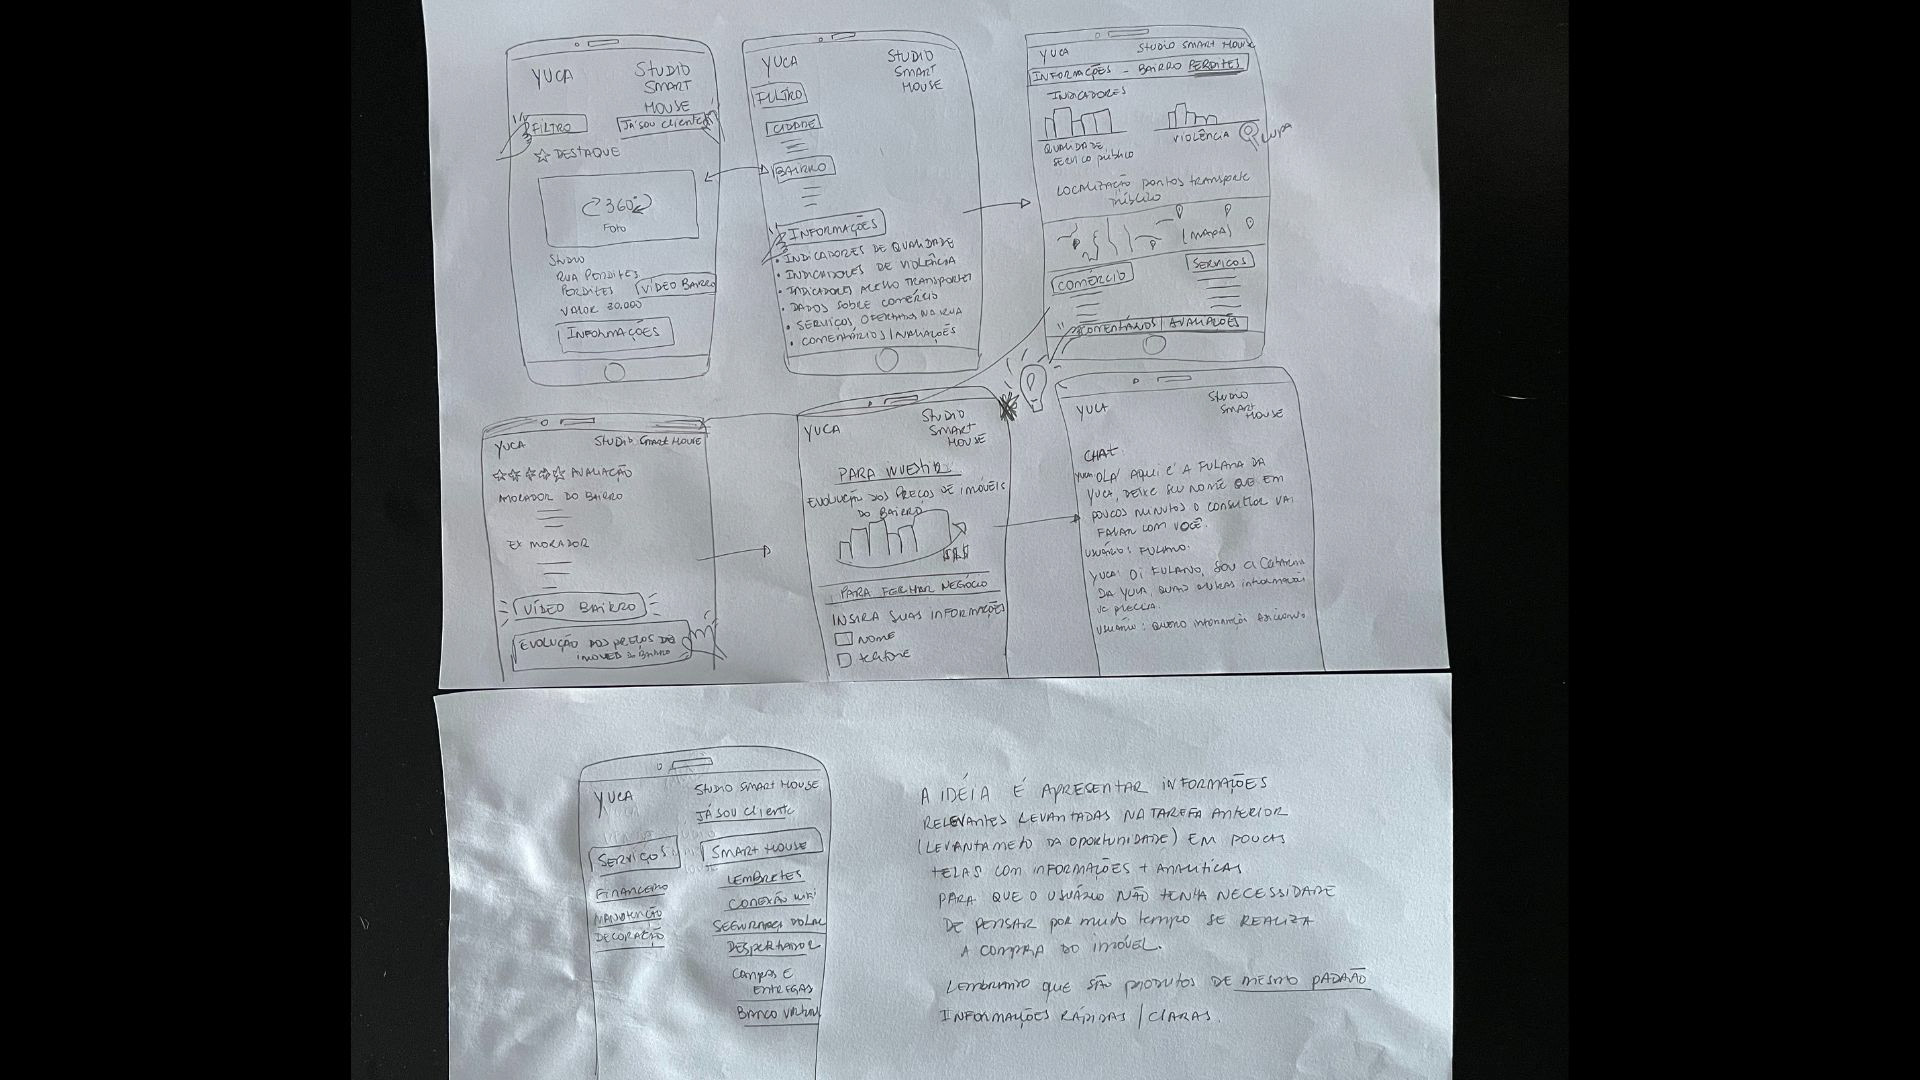 YUCA
STUDIO
SMART
HOUSE
FILTRO
JÁ SOU CLIENTE
DESTAQUE
360°
FOTO
STUDIO
RUA PERDIZES
PERDIZES
VÍDEO BAIRRO
VALOR 30.000
INFORMAÇÕES
YUCA
STUDIO
SMART
HOUSE
FILTRO
CIDADE
BAIRRO
INFORMAÇÕES
• INDICADORES DE QUALIDADE
• INDICADORES DE VIOLÊNCIA
• INDICADORES ACESSO TRANSPORTE
• DADOS SOBRE COMÉRCIO
• SERVIÇOS OFERTADOS NA RUA
• COMENTÁRIOS / AVALIAÇÕES
YUCA
STUDIO SMART HOUSE
INFORMAÇÕES - BAIRRO PERDIZES
INDICADORES
QUALIDADE
SERVIÇO PÚBLICO
VIOLÊNCIA
LUPA
LOCALIZAÇÃO PONTOS TRANSPORTE
PÚBLICO
(MAPA)
COMÉRCIO
SERVIÇOS
COMENTÁRIOS | AVALIAÇÕES
YUCA
STUDIO SMART HOUSE
AVALIAÇÃO
MORADOR DO BAIRRO
EX MORADOR
VÍDEO BAIRRO
EVOLUÇÃO DOS PREÇOS DE
IMÓVEIS DO BAIRRO
YUCA
STUDIO
SMART
HOUSE
PARA INVESTIR
EVOLUÇÃO DOS PREÇOS DE IMÓVEIS
DO BAIRRO
PARA FECHAR NEGÓCIO
INSIRA SUAS INFORMAÇÕES
NOME
TELEFONE
YUCA
STUDIO
SMART
HOUSE
CHAT:
YUCA: OLÁ! AQUI É A FULANA DA
YUCA, DEIXE SEU NOME QUE EM
POUCOS MINUTOS O CONSULTOR VAI
FALAR COM VOCÊ.
USUÁRIO: FULANO.
YUCA: OI FULANO, SOU A CATARINA
DA YUCA, QUAIS OUTRAS INFORMAÇÕES
VC PRECISA.
USUÁRIO: QUERO INFORMAÇÃO
YUCA
STUDIO SMART HOUSE
JÁ SOU CLIENTE
SERVIÇOS:
FINANCEIRO
MANUTENÇÃO
DECORAÇÃO
SMART HOUSE
LEMBRETES
CONEXÃO WIFI
SEGURANÇA DO LAR
DESPERTADOR
COMPRAS E
ENTREGAS
BANCO VIRTUAL
A IDÉIA É APRESENTAR INFORMAÇÕES
RELEVANTES LEVANTADAS NA TAREFA ANTERIOR
(LEVANTAMETO DA OPORTUNIDADE) EM POUCAS
TELAS COM INFORMAÇÕES + ANALITICAS
PARA QUE O USUÁRIO NÃO TENHA NECESSIDADE
DE PENSAR POR MUITO TEMPO SE REALIZA
A COMPRA DO IMÓVEL.
LEMBRANDO QUE SÃO PRODUTOS DE MESMO PADRÃO
INFORMAÇÕES RÁPIDAS / CLARAS.